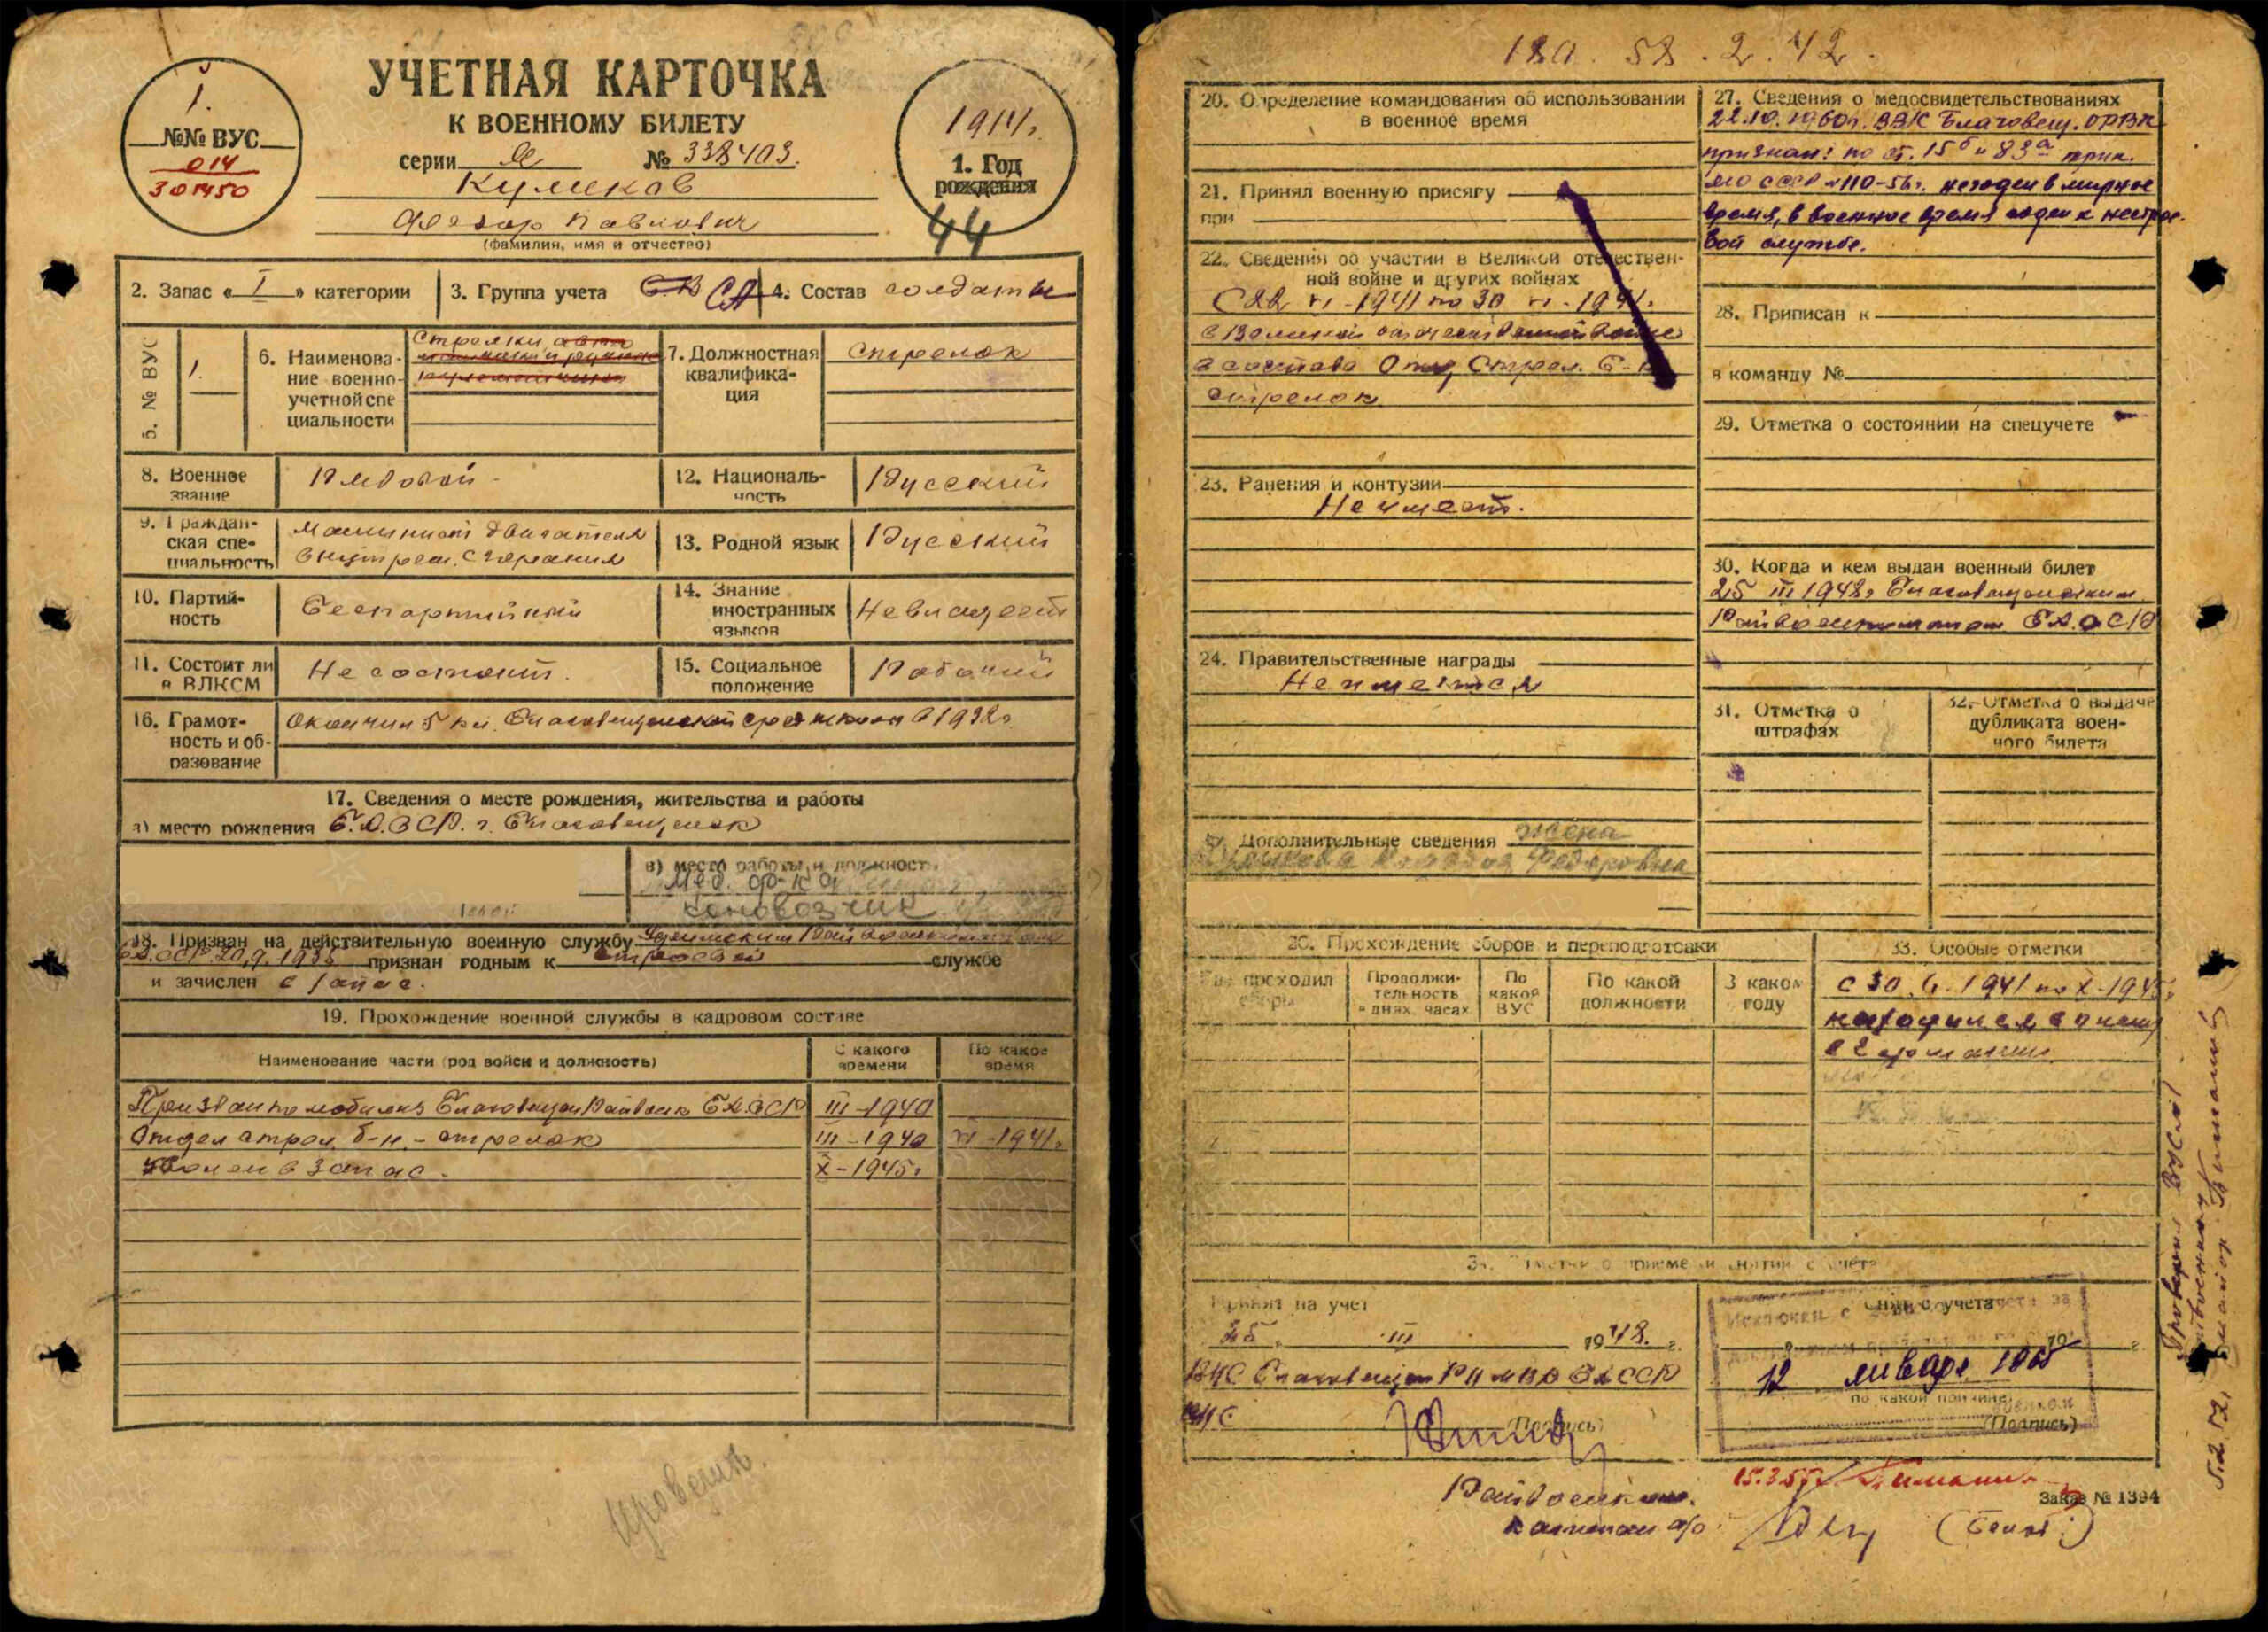 УЧЕТНАЯ КАРТОЧКА
К ВОЕННОМУ БИЛЕТУ
серии № 338403.
Куликов
Федор Павлович
(фамилия, имя и отчество)
1.
№№ ВУС
014
301450
1914г.
1. Год
рождения
44
2. Запас « I » категории
3. Группа учета СА
4. Состав солдаты
5. № ВУС 1.
6. Наименова-
ние военно-
учетной спе
циальности
Стрелки
7. Должностная
квалифика-
ция
Стрелок
8. Военное
звание
Рядовой
12. Националь-
ность
Русский
9. Граждан-
ская спе-
циальность
Машинист двигателя
внутрен. сгорания
13. Родной язык Русский
10. Партий-
ность
Беспартийный
14. Знание
иностранных
языков
Не владеет
11. Состоит ли
в ВЛКСМ
Не состоит.
15. Социальное
положение
Рабочий
16. Грамот-
ность и об-
разование
Окончил 5 кл. Благовещенской сред школы в 1932г
17. Сведения о месте рождения, жительства и работы
а) место рождения Б.А.ССР. г. Благовещенск
в) место работы и должност.
Меб. ф-ка
коновозчик
18. Призван на действительную военную службу
БА.ССР. 20.9.1935 признан годным к строевой службе
и зачислен в запас.
19. Прохождение военной службы в кадровом составе
Наименование части (род войск и должность)
С какого
времени
По какое
время
Призван по мобилиз Благовещен Райвоенк БА.ССР III-1940
Отдел стрел. б-н. - стрелок III-1940 VI-1941г
Уволен в запас. X-1945г
Проверил.
180. 58. 2. 42.
20. Определение командования об использовании
в военное время
21. Принял военную присягу
при
22. Сведения об участии в Великой отечествен-
ной войне и других войнах
С 22 VI-1941 по 30 VI-1941г
в Великой отечественной войне
в составе Отд. Стрел. Б-н
стрелок
23. Ранения и контузии
Не имеет.
24. Правительственные награды
Не имеется
Дополнительные сведения жена
Федоровна
26. Прохождение сборов и переподготовки
Где проходил
сборы
Продолжи-
тельность
в днях, часах
По
какой
ВУС
По какой
должности
В каком
году
27. Сведения о медосвидетельствованиях
22.10.1960г. ВВК Благовещ. ОРВК
признан: по ст. 15б и 83а прик.
МО СССР №110-56г. негоден в мирное
время, в военное время годен к нестрое-
вой службе.
28. Приписан к
в команду №
29. Отметка о состоянии на спецучете
30. Когда и кем выдан военный билет
25 III 1948г Благовещенским
Райвоенкоматом БА.ССР
31. Отметка о
штрафах
32. Отметка о выдаче
дубликата воен-
ного билета
33. Особые отметки
с 30.6.1941 по X-1945г
находился в плену
в Германии
34. Отметки о приеме и снятии с учета
Принят на учет
25. III 1948. г.
ВУС Благовещен РО МВД БАССР
ВУС
(Подпись)
Снят с учета
12 января 1965
по какой причине
(Подпись)
Райвоенком.
капитан а/с
15.3.57г
Заказ № 1394
Проверил ВУС №1
майор
5.2.52г